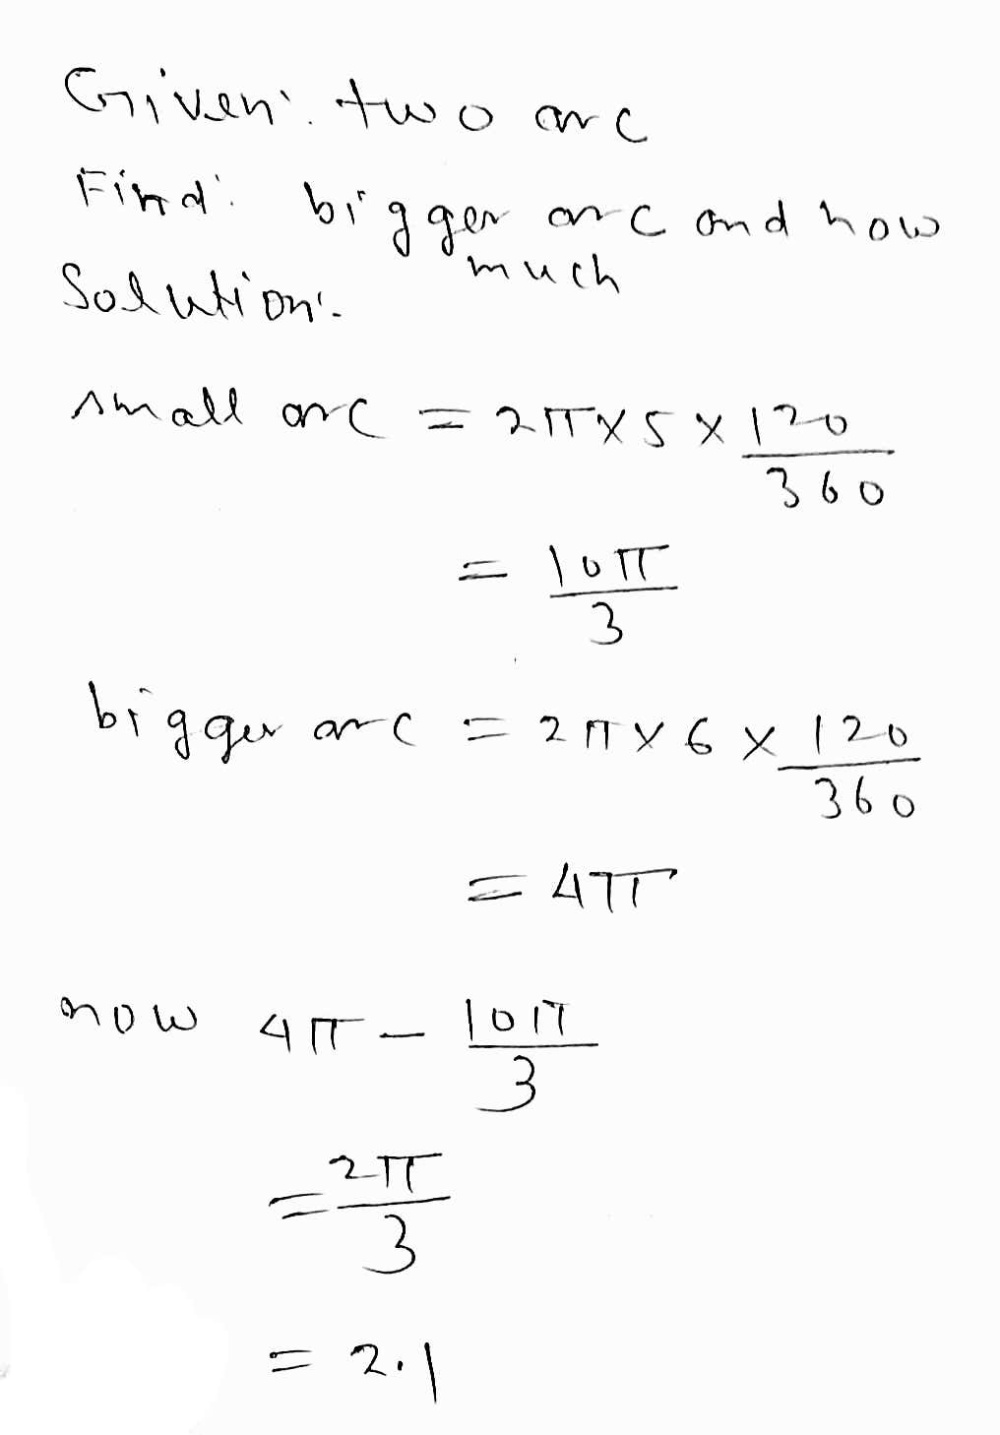 Given: two arc
Find: bigger arc and how
much
Solution:-
small arc = 2π×5×120/360
= 10π/3
bigger arc = 2π×6×120/360
= 4π
now 4π - 10π/3
= 2π/3
= 2.1